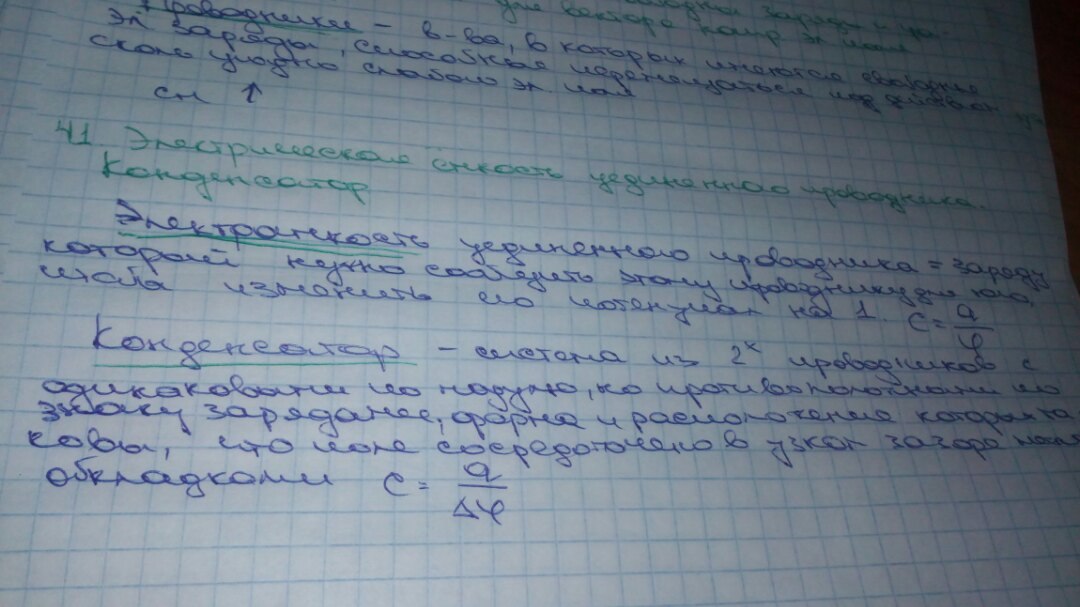 для вектора напр эл поля
Проводники – в-ва, в которых имеются свободные
эл заряды, способные перемещаться под действием
сколь угодно слабого эл. поля
сн ↑
41. Электрическая ёмкость уединенного проводника.
Конденсатор
Электроемкость уединенного проводника = заряду
который нужно сообщить этому проводнику для того,
чтобы изменить его потенциал на 1. C = q/φ
Конденсатор – система из 2х проводников с
одинаковыми по модулю, но противоположными по
знаку зарядами, форма и расположение которых та
ковы, что поле сосредоточено в узком зазоре между
обкладками C = q/Δφ